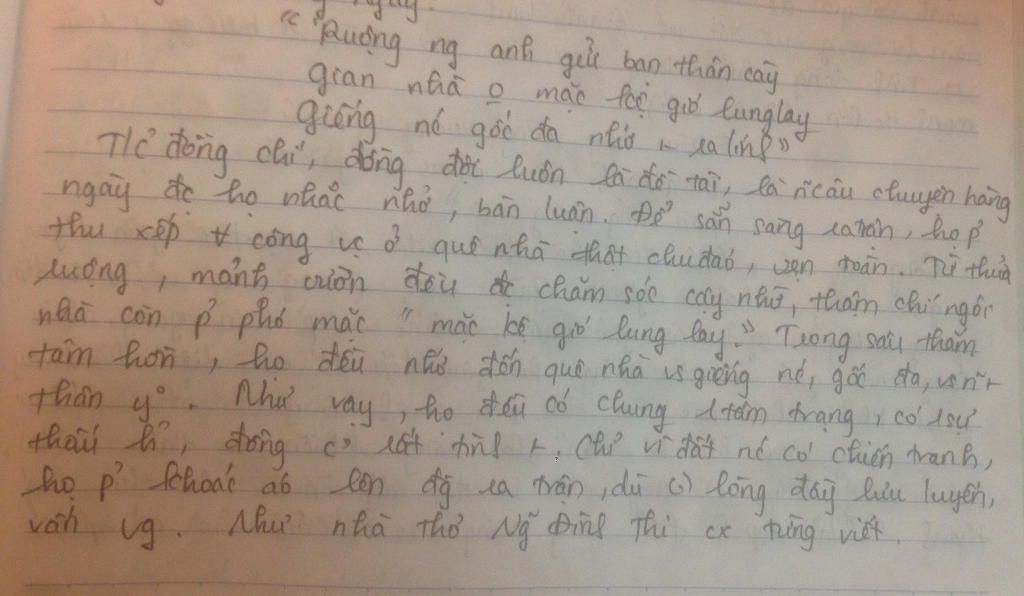 ngày.
" Ruộng ng anh gửi bạn thân cày
gian nhà o mặc kệ gió lung lay
Giếng nc gốc đa nhớ ra lính "
T/c đồng chí, đồng đội luôn là đề tài, là câu chuyện hàng
ngày đc họ nhắc nhở, bàn luận. Để sẵn sàng ra trận, họ p
thu xếp ∀ công vc ở quê nhà thật chu đáo, vẹn toàn. Từ thửa
ruộng, mảnh vườn đều đc chăm sóc cậy nhờ, thậm chí ngôi
nhà còn p phó mặc " mặc kệ gió lung lay." Trong sâu thẳm
tâm hồn, họ đều nhớ đến quê nhà vs giếng nc, gốc đa, vs
thân y°. Như vậy, họ đều có chung 1 tâm trạng, có 1 sự
thấu h', đồng c' rất . Chỉ vì đất nc có chiến tranh,
họ p khoác áo lên đg ra trận, dù (.) lòng đầy lưu luyến,
vấn vg. Như nhà thơ Ng Đình Thi cx từng viết.